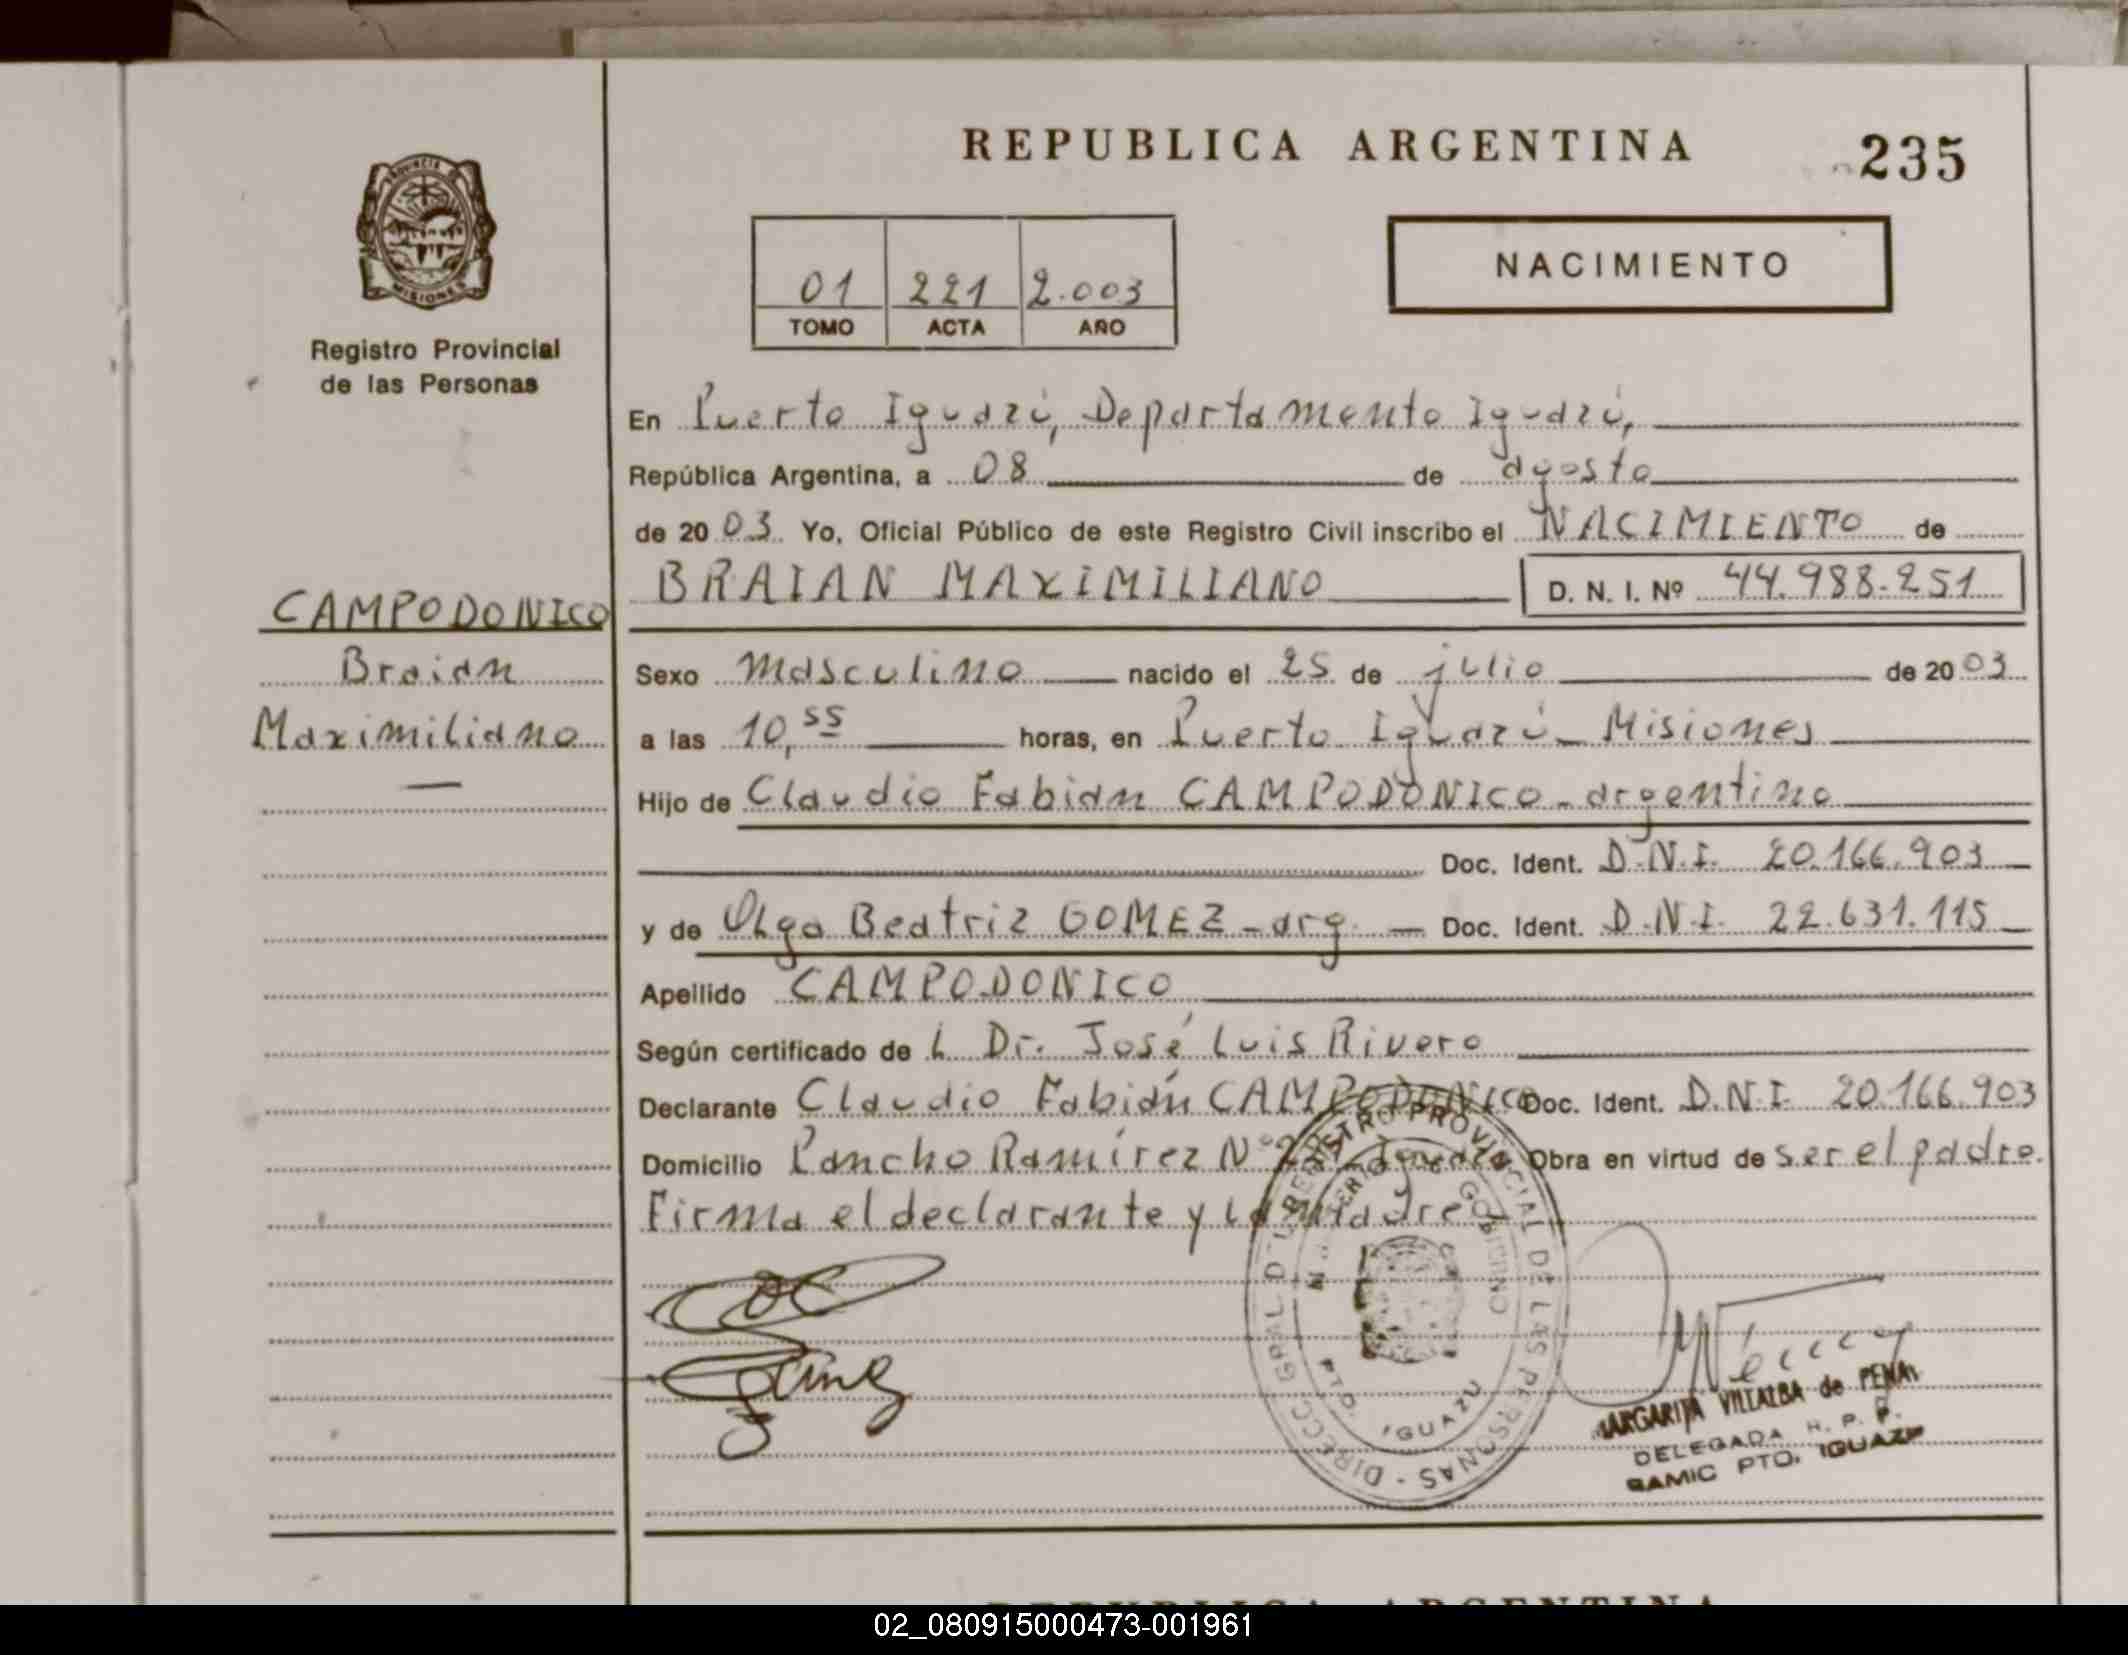 REPUBLICA ARGENTINA
235
PROVINCIA DE
MISIONES
Registro Provincial
de las Personas
01 221 2.003
TOMO ACTA AÑO
NACIMIENTO
En Puerto Iguazú, Departamento Iguazú,
República Argentina, a 08 de agosto
de 2003 Yo, Oficial Público de este Registro Civil inscribo el NACIMIENTO de
BRAIAN MAXIMILIANO D. N. I. Nº 44.988.251
CAMPODONICO
Braian
Maximiliano
Sexo masculino nacido el 25 de julio de 2003
a las 10,55 horas, en Puerto Iguazú - Misiones
Hijo de Claudio Fabian CAMPODONICO - argentino
Doc. Ident. D.N.I. 20.166.903
y de Olga Beatriz GOMEZ - arg. Doc. Ident. D.N.I. 22.631.115
Apellido CAMPODONICO
Según certificado de L Dr. José Luis Rivero
Declarante Claudio Fabián CAMPODONICO Doc. Ident. D.N.I. 20.166.903
Domicilio Pancho Ramírez Nº Iguazú Obra en virtud de ser el padre.
Firma el declarante y la madre
REGISTRO PROVINCIAL DE LAS PERSONAS - DIRECC GRAL D
GOBIERNO
PTO. IGUAZU
MARGARITA VILLALBA de PENA
DELEGADA R. P. P.
SAMIC PTO. IGUAZU
REPUBLICA ARGENTINA
02_080915000473-001961